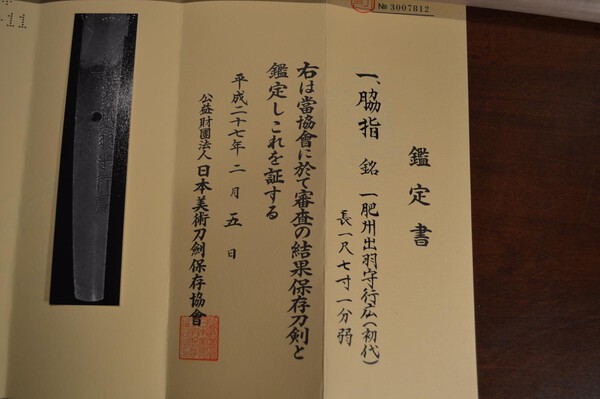 № 3007812
鑑定書
一、脇指 銘 一肥州出羽守行広(初代)
長一尺七寸一分弱
右は當協會に於て審査の結果保存刀剣と
鑑定しこれを証する
平成二十七年二月五日
公益財團法人 日本美術刀劍保存協會